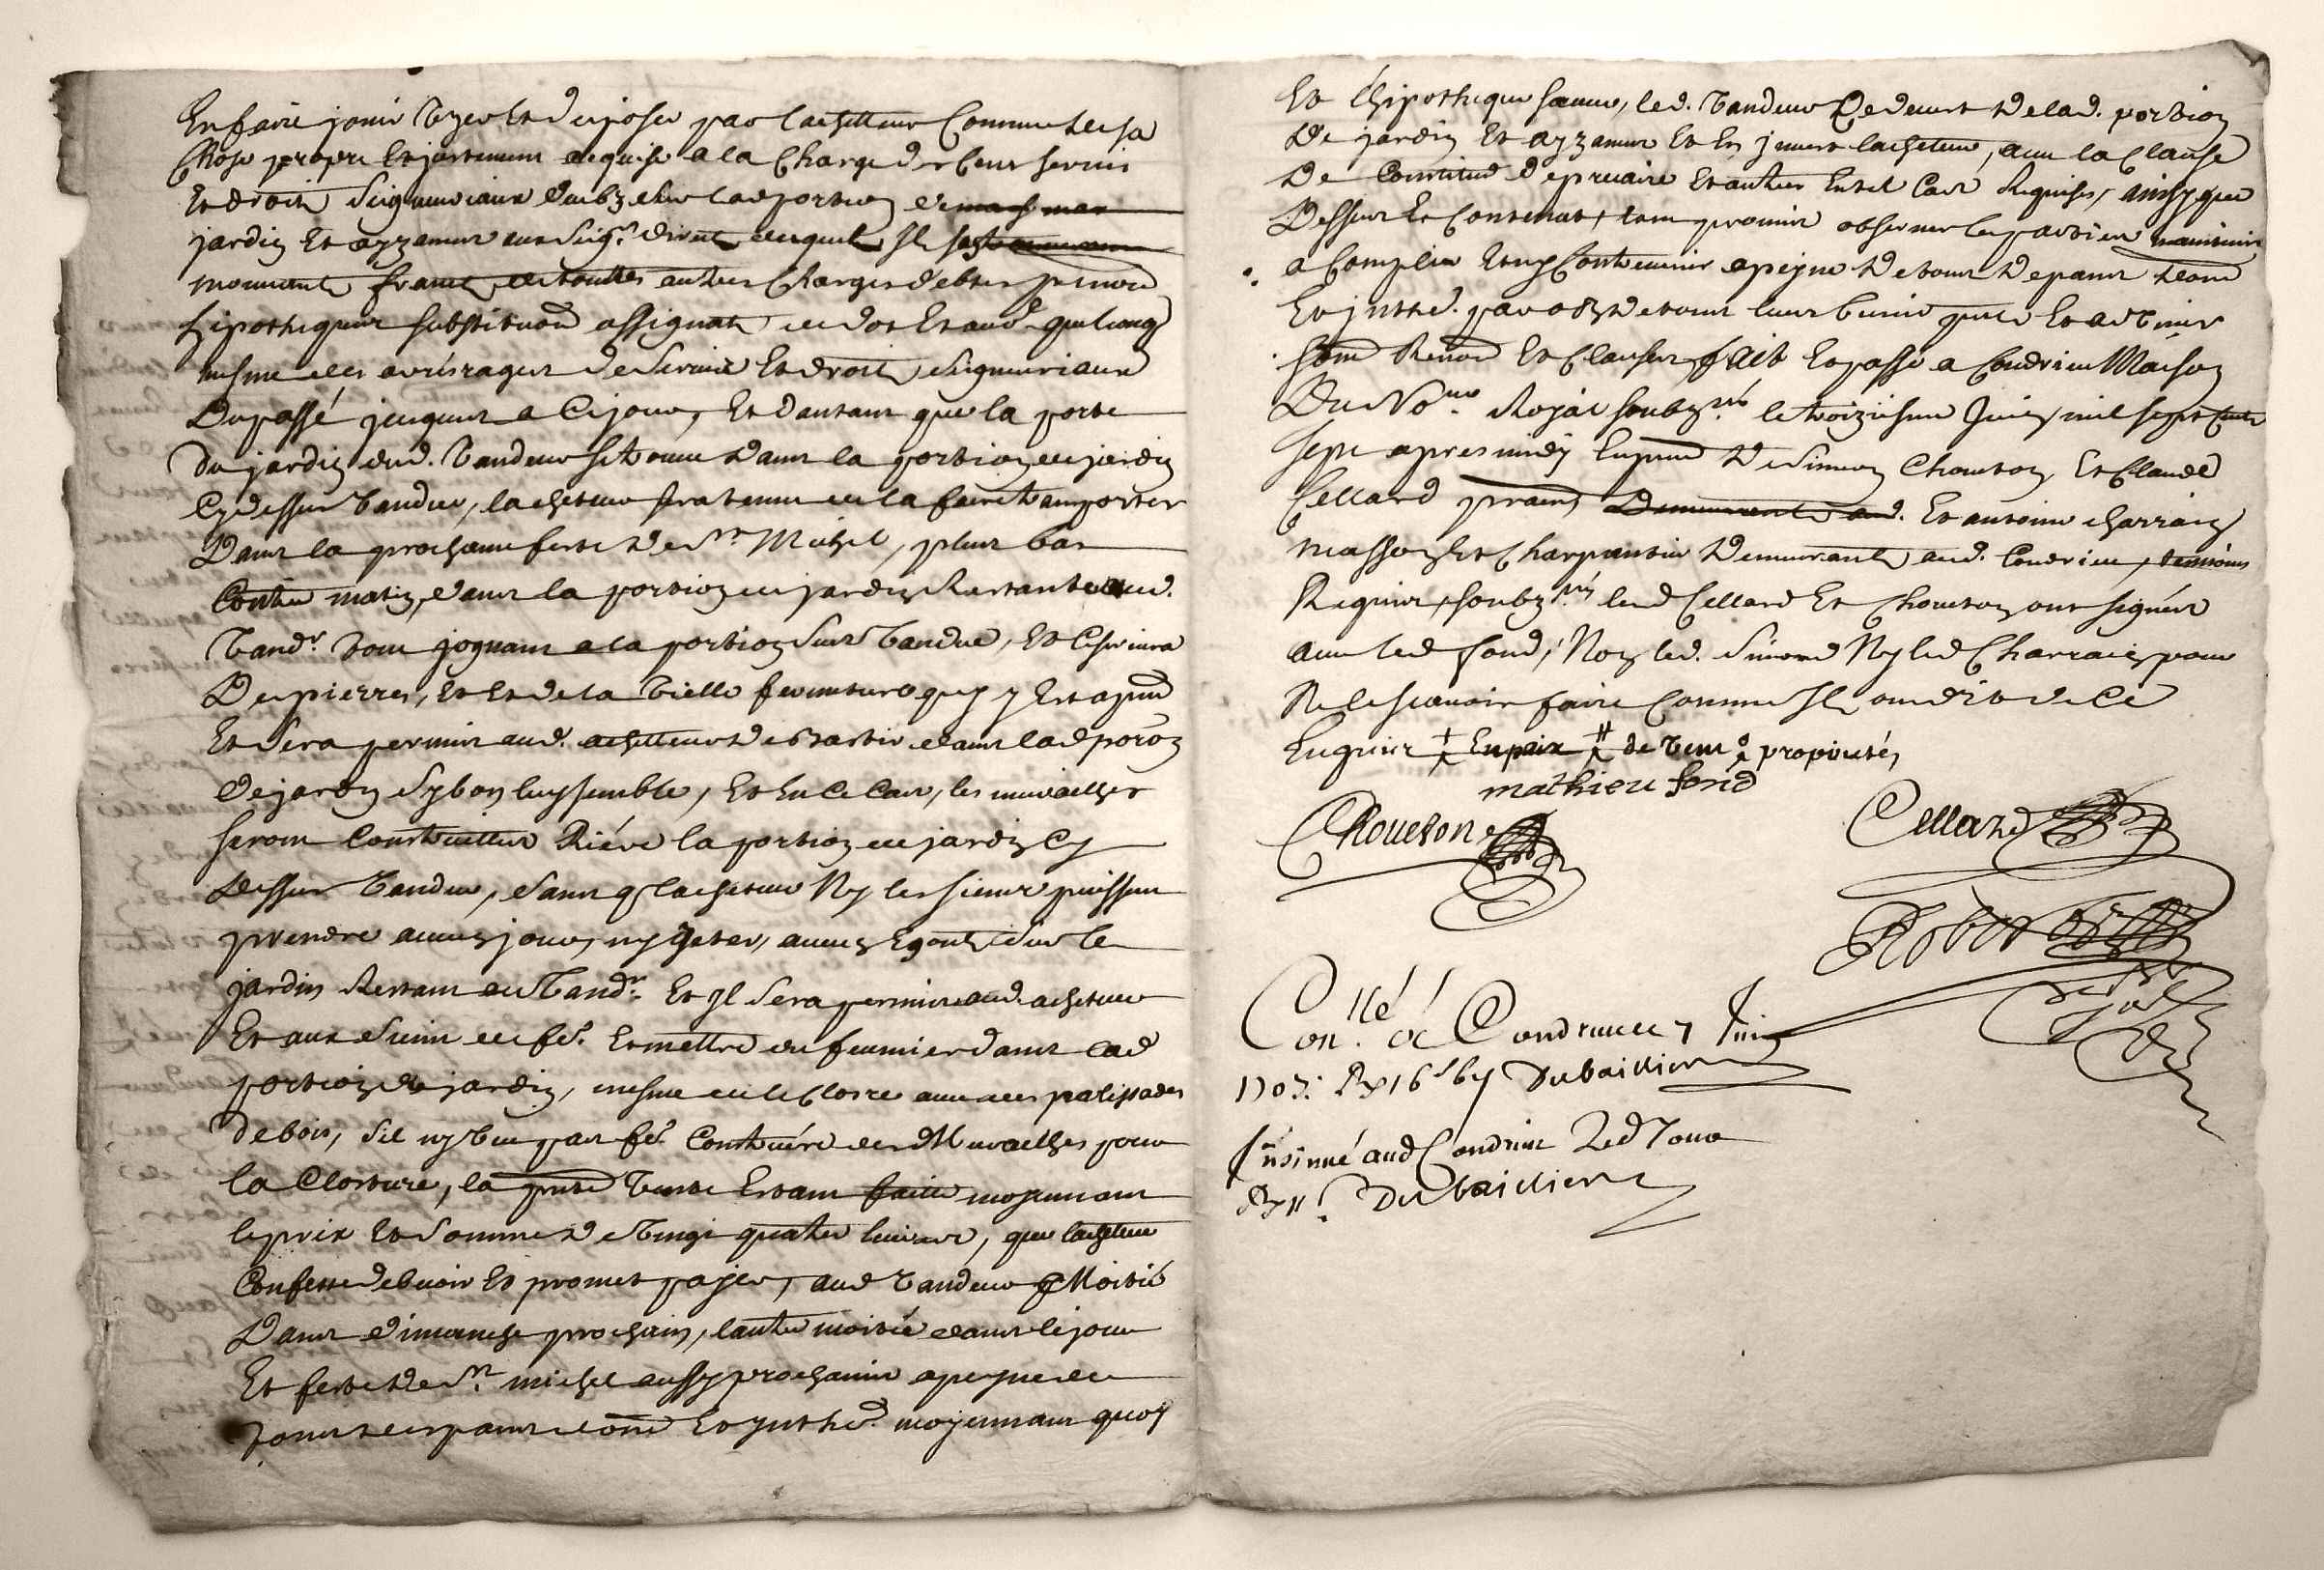 En faire jouir Uzer Et disposer par lachetteur Comme de sa
Chose propre Et justement acquise a la Charge des Cens servis
Et droits Seigneuriaux deubz sur lad portion de
jardin Et ayzances aux Seigrs directs desquels Il
mouvants franc de touttes autres Charges debtes pensions
hipotheques substitutions assignats de dot Et autres quelconqs
mesme des arrérages de servis Et droits Seigneuriaux
Du passé jusques a Ce jour, Et dautant que la porte
du jardin dud. Vandeur se trouve dans la portion de jardin
Cy dessus Vandue, lachepteur sera tenu de la faire transporter
Dans la prochaine feste de St Michel, plus bas
Contre matin, dans la portion de jardin Restante aud.
Vandr tout joignant a la portion Sus Vandue, Et Se servira
Des pierres, Et de la Vielle fermeture qui y Est a pnt
Et Sera permis aud. achetteur de Bastir dans lad poron
de jardin Sy bon luy semble, Et En Ce Cas, les murailles
seront Construittes Riére la portion de jardin Cy
dessus Vandue, sans q lachepteur Ny les siens puissent
prendre aucun jour, ny Jetter, aucun Egout sur le
jardin Restant du Vandr. Et Il Sera permis aud. achepteur
Et aux Siens de fe. Et mettre du fumier dans lad
portion de jardin, mesme de le Clorre avec des palissades
de bois, sil ny veu pas fe. Construire des Murailles pour
la Closture, la pnte Vente Estant faitte moyennant
le prix Et Somme de Vingt quatre livres, que lachetteur
Confesse debvoir Et promet payer, aud Vandeur Moitié
Dans dimanche prochain, lautre moitié dans le jour
Et feste de St michel aussy prochaine a peyne de
tous despans dom Et Inthes. moyennant quoy
Et Lhipotheque sauve, led. Vandeur Se demet de lad. portion
De jardin Et ayzances Et En Investit lachepteur, avec la Clause
De Constitut de precaire Et autres En tel Cas Requises, ainsy que
Dessus Est Contenut, tout promis observer les parties
a Complir Et ny Contrevenir a peyne de tous depans dom
Et Intthes. par oblon de tous leurs biens pnts Et advenir
Soub Renon Et Clauses fait Et passé a Condrieu Maison
Du Nore Royal soubz né le troiziesme Juin mil sept Cents
sept apres midy En pnce de Simon Chouton, Et Claude
Cellard pratns Et antoine charrain
masson Et Charpantier Demeurants aud. Condrieu, temoins
Requis, soubznés led Cellard Et Chouton ont signés
avec led fond, Non led. Simond Ny led Charrain pour
Ne le scavoir faire Comme Ils ont dit de Ce
Enquis En paix de Veue propriétés
mathieu fond
Chouton
Cellard
Robert
Conllé a Condrieu le 7 Juin
1707. Rx 16s 6d Dubaillier
Insinué aud Condrieu Led Jour
Rx Dubaillier